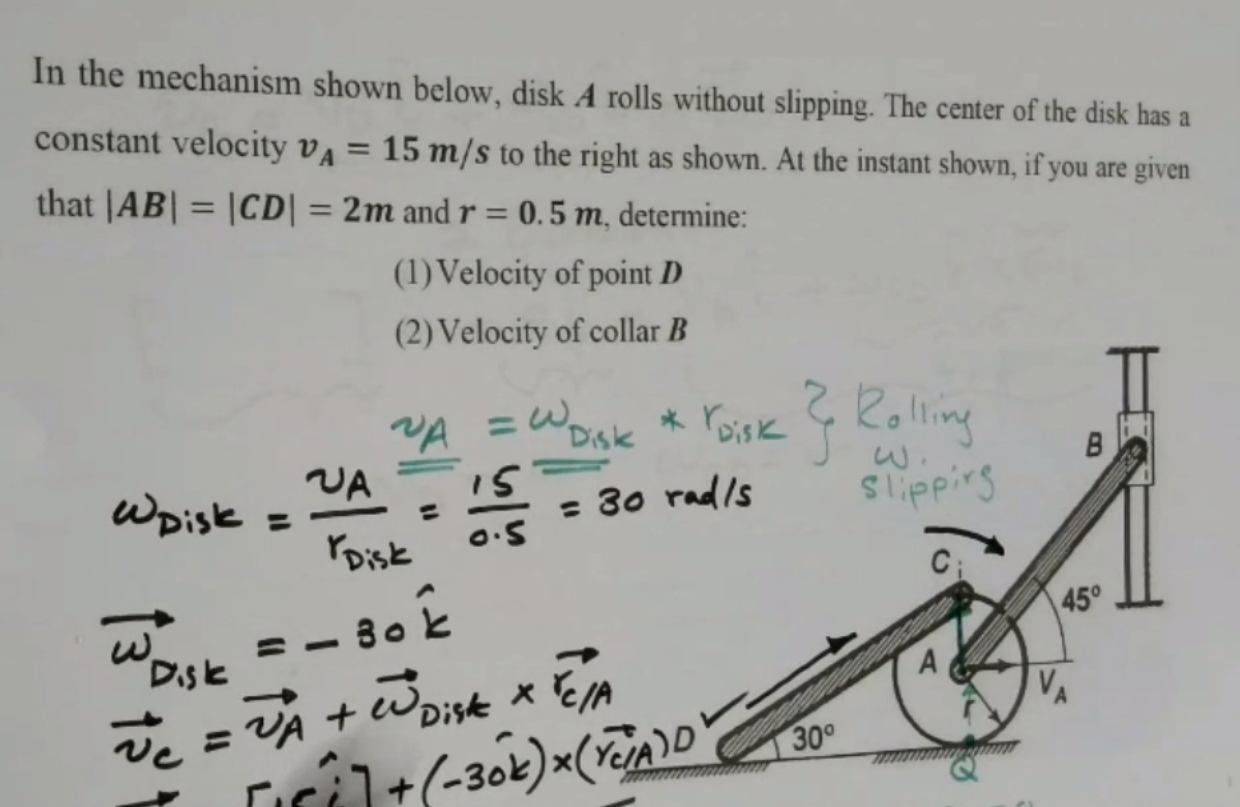 In the mechanism shown below, disk A rolls without slipping. The center of the disk has a
constant velocity v_A = 15 m/s to the right as shown. At the instant shown, if you are given
that |AB| = |CD| = 2m and r = 0.5 m, determine:
(1) Velocity of point D
(2) Velocity of collar B
v_A = ω_Disk * r_Disk } Rolling
w.
slipping
ω_Disk = v_A / r_Disk = 15 / 0.5 = 30 rad/s
B
C
45°
ω⃗_Disk = - 30 k̂
A
V_A
v⃗_C = v⃗_A + ω⃗_Disk × r⃗_C/A
r
D
30°
+ (-30k̂) × (r⃗_C/A)
Q